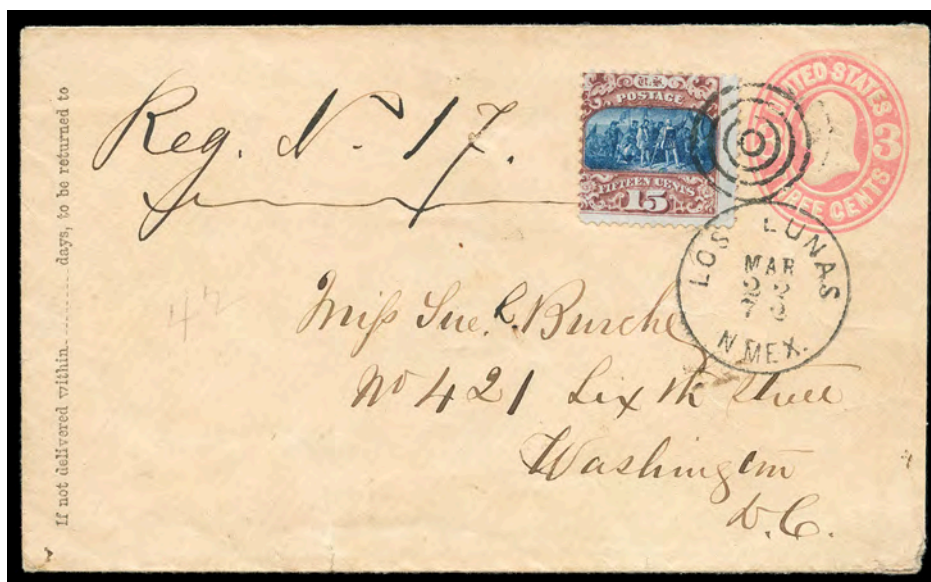 If not delivered within ........ days, to be returned to
Reg. No 17.
U.S.
POSTAGE
FIFTEEN CENTS
15
UNITED STATES
3
THREE CENTS
LOS LUNAS
MAR
22
73
N. MEX.
42
Miss Sue. C. Burche
No 421 Sixth Street
Washington
D.C.